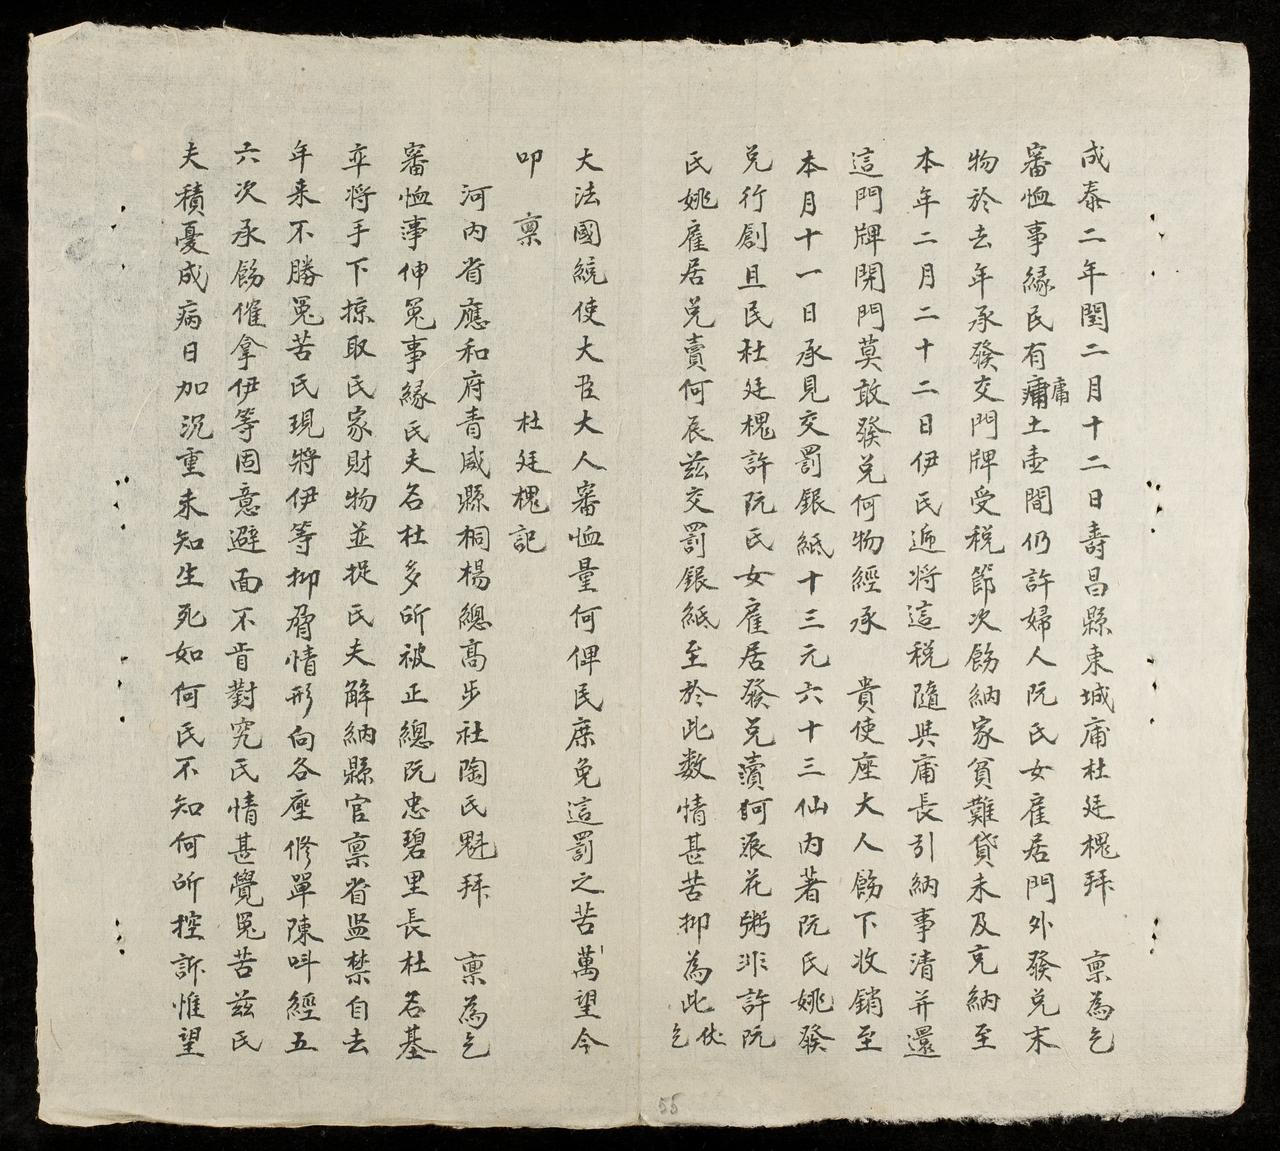 成泰二年閏二月十二日壽昌縣東城庯杜廷槐拜　稟為乞
審恤事緣民有庯庸土壹間仍許婦人阮氏女雇居門外發兌末
物於去年承發交門牌受稅節次飭納家貧難貸未及充納至
本年二月二十二日伊民逓將這稅隨與庯長引納事清并還
這門牌閉門莫敢發兌何物經承　貴使座大人飭下收銷至
本月十一日承見交罰銀紙十三元六十三仙內著阮氏姚發
兌行創且民杜廷槐許阮氏女雇居發兌瀆何派花粥非許阮
氏姚雇居兌賣何辰茲交罰銀紙至於此数情甚苦抑為此伏乞
大法國統使大臣大人審恤量何俾民庶免這罰之苦萬望今
叩　稟　　　杜廷槐記
河內省應和府青威縣桐楊總高步社陶氏魁拜　稟為乞
審恤事伸冤事緣氏夫名杜多所被正總阮忠碧里長杜名基
卒將手下掠取氏家財物並捉氏夫解納縣官稟省监禁自去
年来不勝冤苦氏現將伊等抑脅情形向各座修單陳呌經五
六次承飭催拿伊等固意避面不肯對究氏情甚覺冤苦茲氏
夫積憂成病日加沉重未知生死如何氏不知何所控訴惟望
55